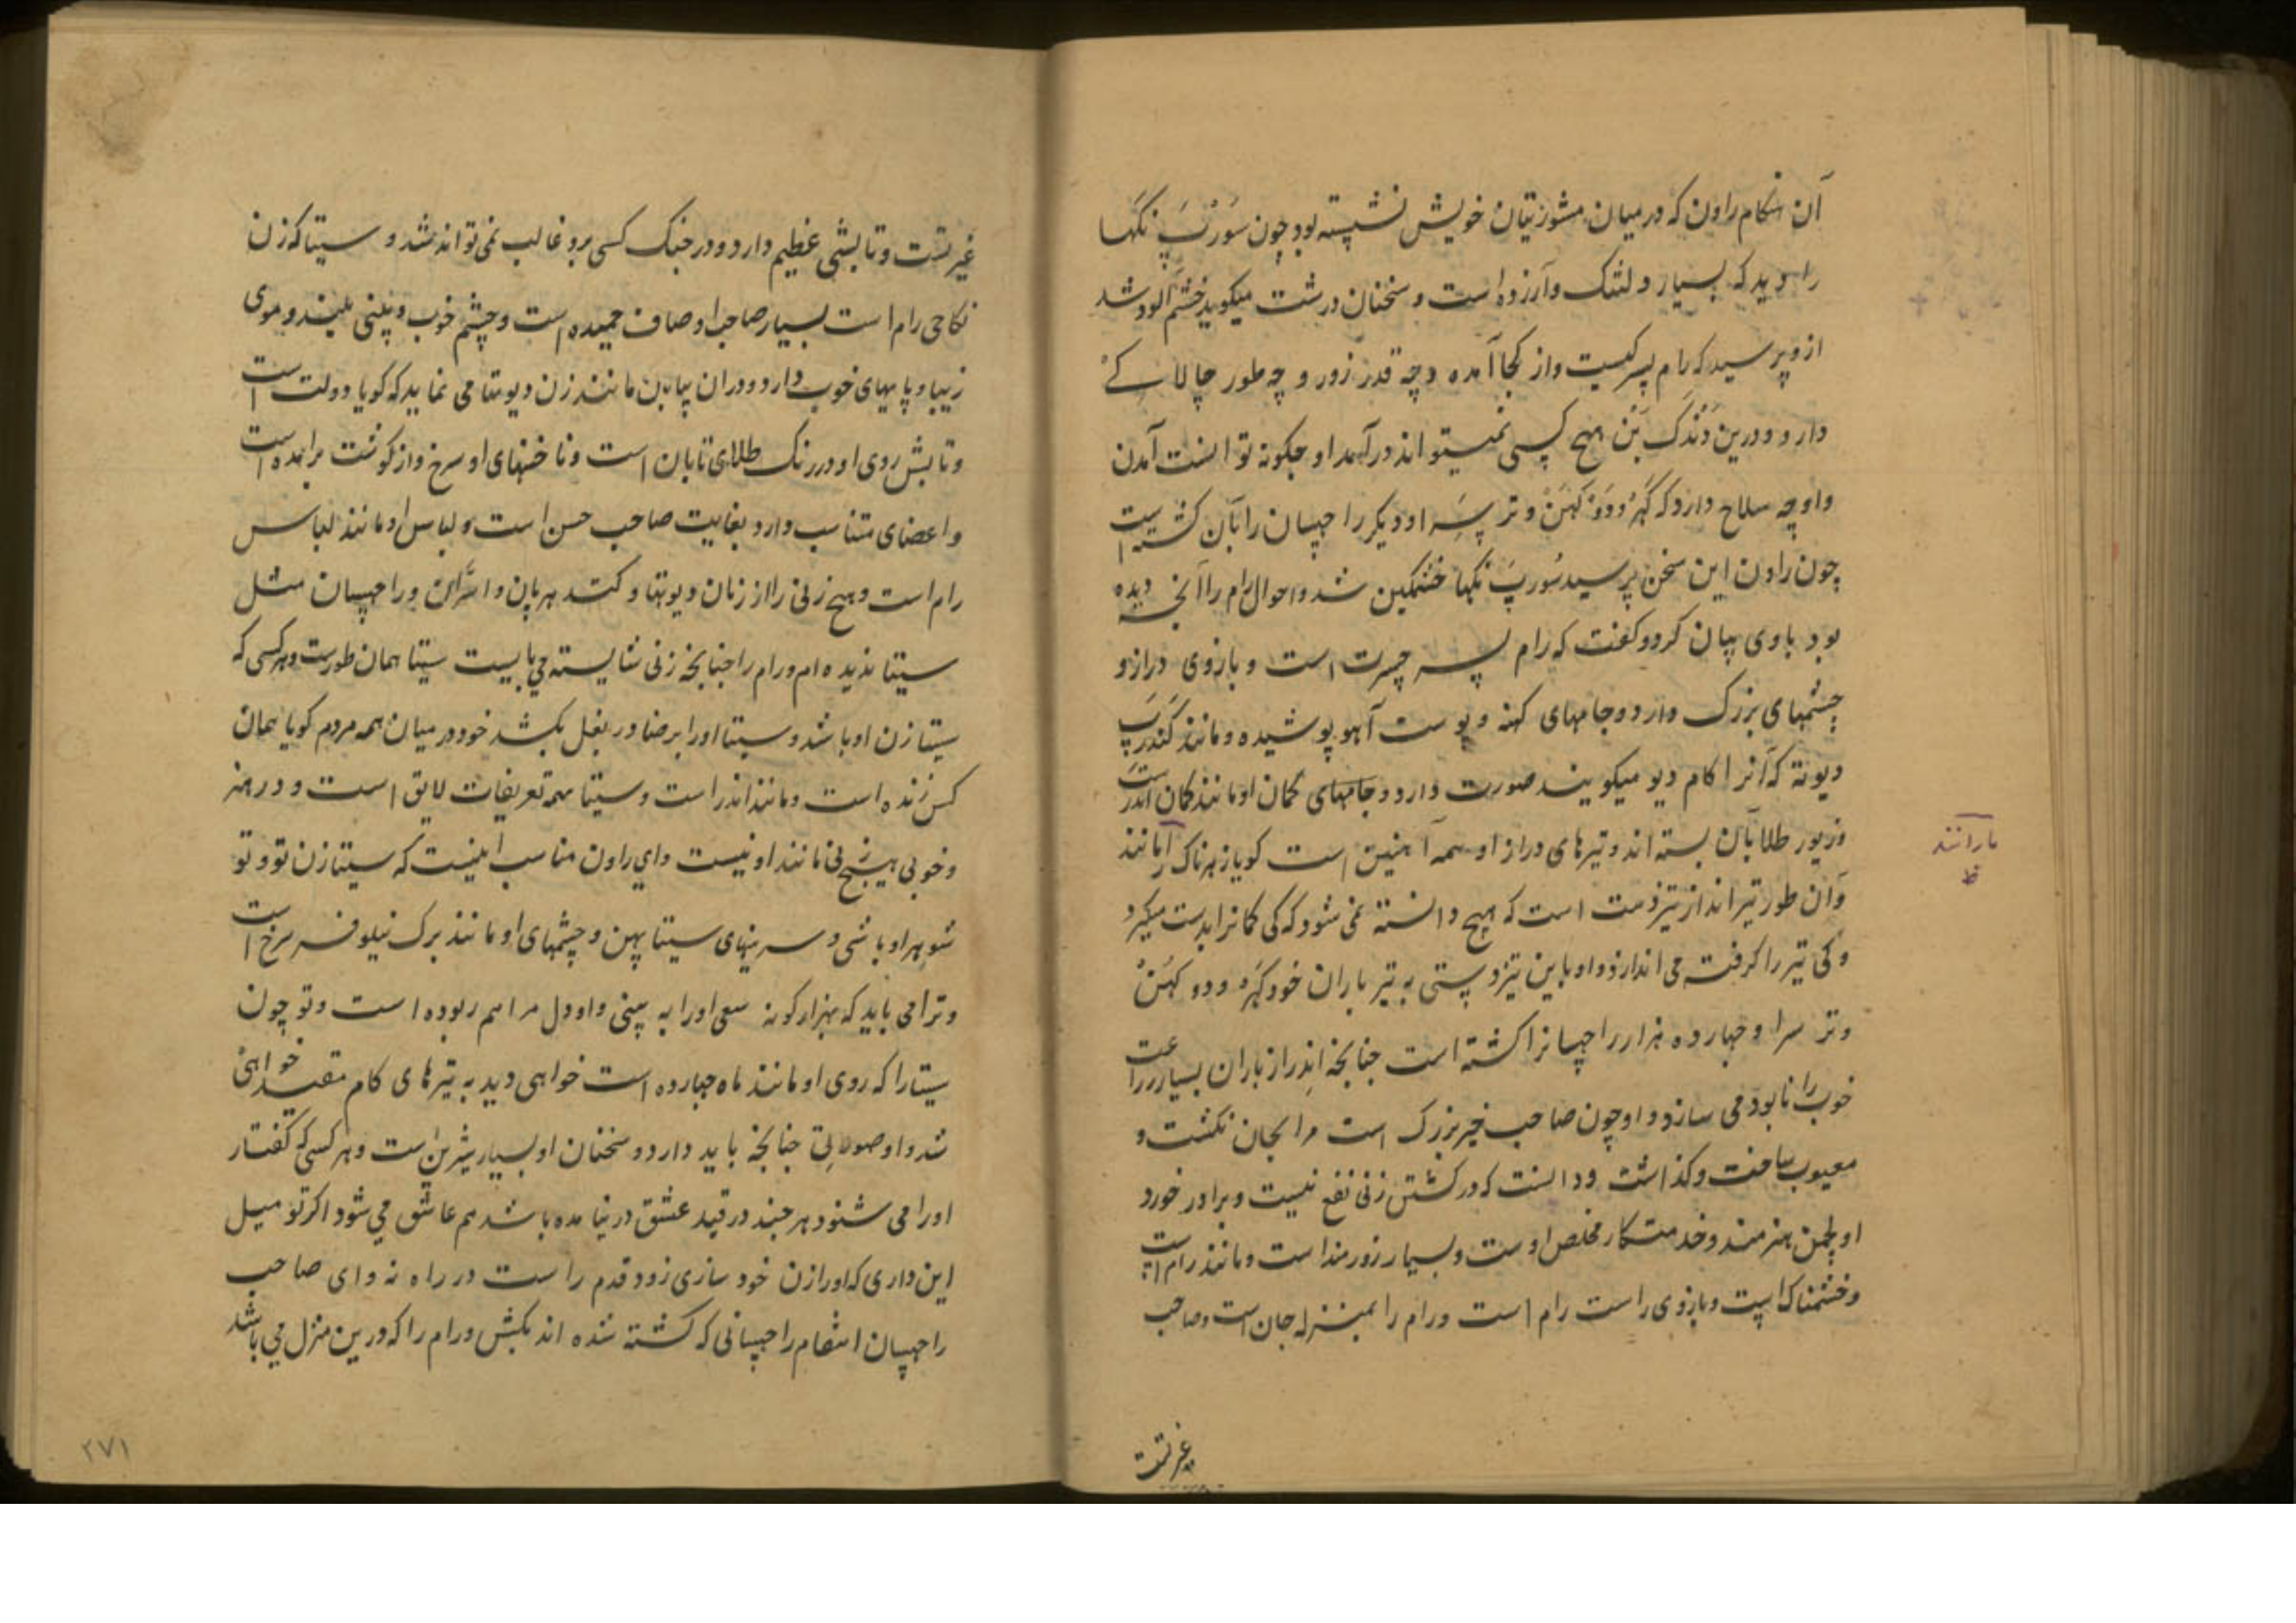 آن هنگام راون که در میان مشورتیان خویش نشسته بود چون سُورْپَ نکَها
را دید که بسیار دلتنک و آزرده است و سخنان درشت میکوید خشم آلود شد
ازو پرسید که رام پسر کیست و از کجا آمده و چه قدر زور و چه طور چالاکی
دارد و درین دَندَک بَن هیچ کسی نمیتواند درآمد او چکونه توانست آمدن
و او چه سلاح دارد که کَهرْ و دُوکَهَن و تر سِرا و دیکر راچهسان را بآن کشته است
چون راون این سخن پرسید سُورپَ نکها خشمکین شد و احوال رام را آنچه دیده
بود باوی بیان کرد و کفت که رام پسر جسرت است و بازوی دراز و
چشمهای بزرک دارد و جامهای کهنه و پوست آهو پوشیده و مانند کَندَرپ
دیوته که آنرا کام دیو میکویند صورت دارد و جامهای کمان او مانند کمان اندر است
و زیور طلا بآن بسته اند و تیرهای دراز او همه آهنین است کویا زهرناک را مانند
و آن طور تیرانداز تیزدست است که هیچ دانسته نمی شود که کی کمانرا بدست میکیرد
و کی تیر را کرفته می اندازد و او باین تیزدستی به تیر باران خود کَهَر و دوکهَنْ
و تر سرا و چهارده هزار راچهسانرا کشته است چنانچه اندر از باران بسیار زراعت
خوب را نابود می سازد و او چون صاحب خیر بزرک است مرا بجان نکشت و
معیوب ساخت و کذاشت و دانست که در کشتن زنی نفع نیست و برادر خورد
او لچمن هنرمند و خدمتکار مخلص اوست و بسیار زورمند است و مانند رام است
و خشمناک است و بازوی راست رام است و رام را بمنزله جان است و صاحب
غیرتست
بارانند
غیرتست و تابشی عظیم دارد و در جنک کسی برو غالب نمی تواند شد و سیتا که زن
نکاحی رام است بسیار صاحب اوصاف حمیده است و چشم خوب و بینی بلند و موی
زیبا و پایهای خوب دارد و در آن بیابان مانند زن دیوتا می نماید که کویا دولت است
و تابش روی او در رنک طلای تابان است و ناخنهای او سرخ و از کوشت برآمده است
و اعضای متناسب دارد بغایت صاحب حسن است و لباس او مانند لباس
رام است و هیچ زنی را از زنان دیوتها و کندهربان و اسَّران و راچهسان مثل
سیتا ندیده ام و رام را چنانچه زنی شایسته می بایست سیتا همان طورست و هر کسی که
سیتا زن او باشد و سیتا او را برضا در بغل بکشد خود در میان همه مردم کویا همان
کس زنده است و مانند اندر است و سیتا همه تعریفات لایق است و در هنر
و خوبی هیچ زنی مانند او نیست و ای راون مناسب اینست که سیتا زن تو و تو
شوهر او باشی و سرینهای سیتا پهن و چشمهای او مانند برک نیلوفر سرخ است
و ترا می باید که بهزار کونه سعی او را به بینی و او دل مرا هم ربوده است و تو چون
سیتا را که روی او مانند ماه چهارده است خواهی دید به تیرهای کام مقید خواهی
شد و او صورتی چنانچه باید دارد و سخنان او بسیار شیرین است و هر کسی که کفتار
او را می شنود هر چند در قید عشق در نیامده باشد هم عاشق می شود اکر تو میل
این داری که او را زن خود سازی زود قدم راست در راه نه و ای صاحب
راچهسان انتقام راچهسانی که کشته شده اند بکش و رام را که درین منزل می باشد
۲۷۱